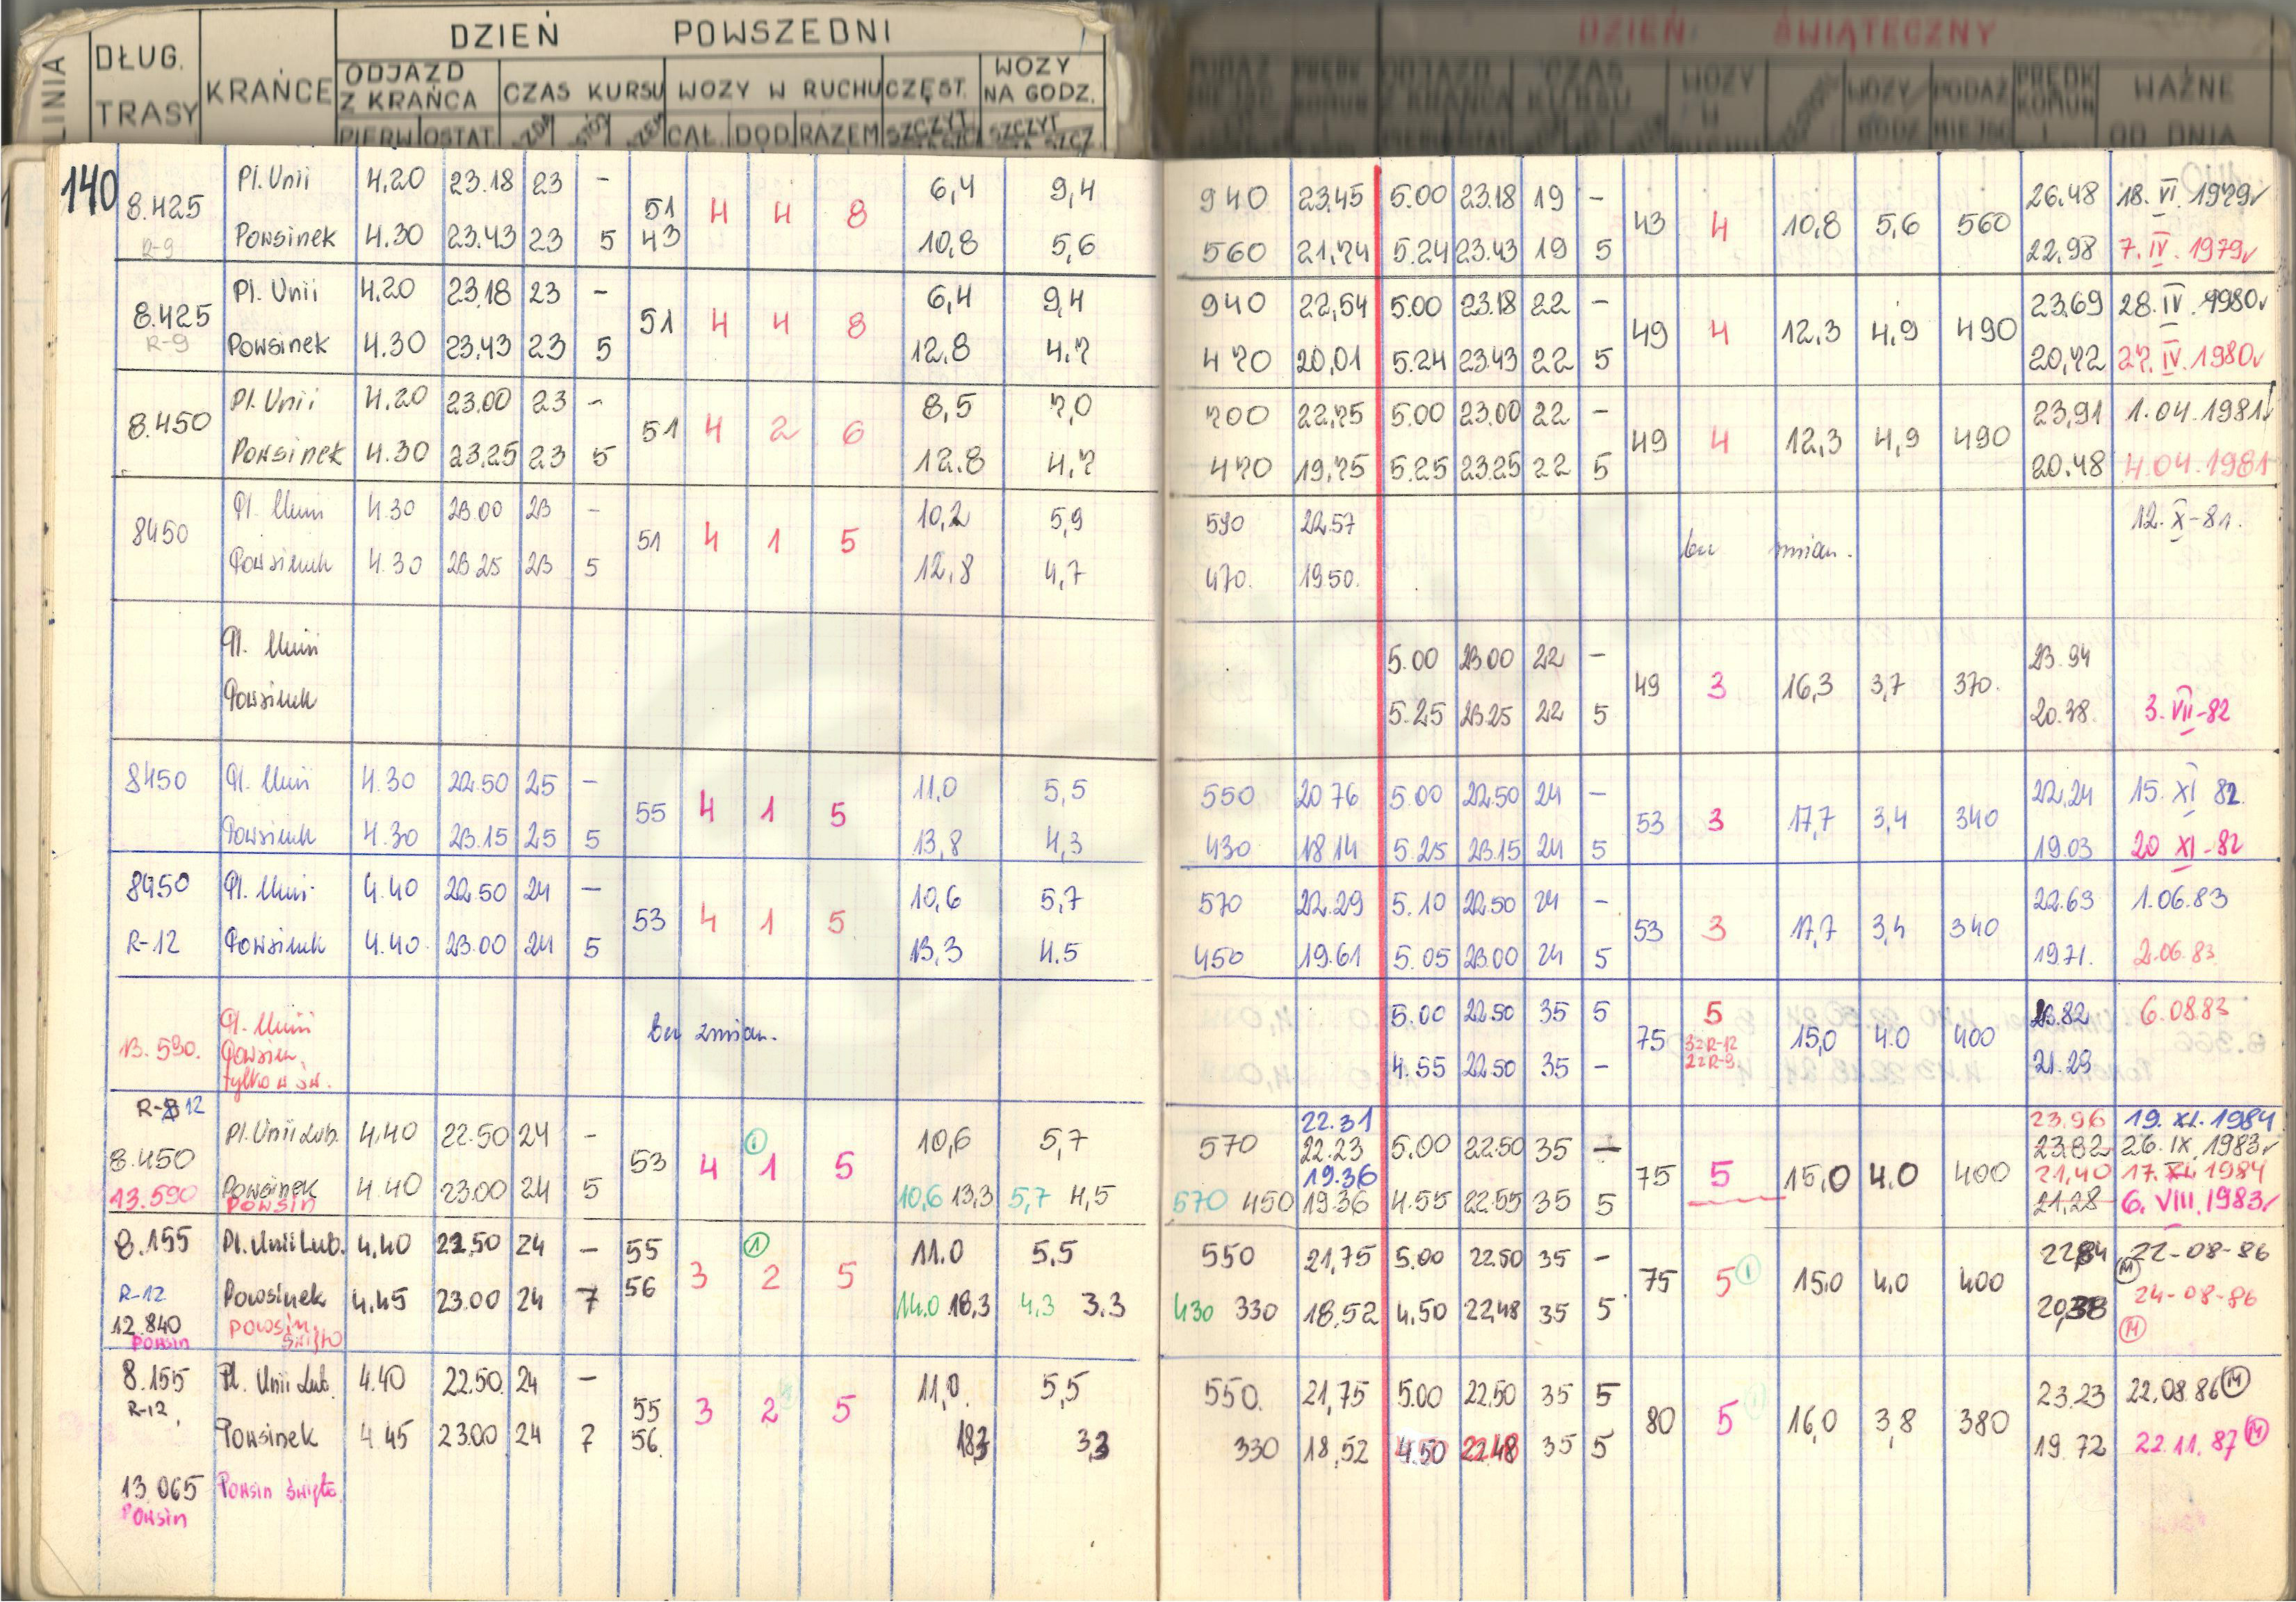 DZIEŃ POWSZEDNI
DZIEŃ ŚWIĄTECZNY
LINIA DŁUG. TRASY KRAŃCE ODJAZD Z KRAŃCA CZAS KURSU WOZY W RUCHU CZĘST. WOZY NA GODZ.
PODAŻ PRĘDK KOMUN ODJAZD Z KRAŃCA CZAS KURSU WOZY W RUCHU WOZY GODZ PODAŻ MIEJSC PRĘDK KOMUN WAŻNE OD DNIA
PIERW OSTAT CAŁ. DOD RAZEM SZCZYT SZCZYT
140
Pl. Unii 4.20 23.18 23 – 6,4 9,4 940 23.45 5.00 23.18 19 – 26.48 18. VI. 1979r
8.425 51 4 4 8 43 4 10,8 5,6 560
R-9 Powsinek 4.30 23.43 23 5 43 10,8 5,6 560 21,74 5.24 23.43 19 5 22,98 7. IV. 1979r
Pl. Unii 4.20 23.18 23 – 6,4 9,4 940 22,54 5.00 23.18 22 – 23.69 28. IV. 1980r
8.425 51 4 4 8 49 4 12,3 4,9 490
R-9 Powsinek 4.30 23.43 23 5 12,8 4,7 470 20,01 5.24 23.43 22 5 20,72 27. IV. 1980r
Pl. Unii 4.20 23.00 23 – 8,5 7,0 700 22,75 5.00 23.00 22 – 23,91 1.04.1981r
8.450 51 4 2 6 49 4 12,3 4,9 490
Powsinek 4.30 23.25 23 5 12.8 4,7 470 19,75 5.25 23.25 22 5 20.48 4.04.1981
Pl. Unii 4.30 23.00 23 – 10,2 5,9 590 22.57 12. X-81.
8450 51 4 1 5 bez zmian.
Powsinek 4.30 23.25 23 5 12,8 4,7 470. 19.50.
Pl. Unii 5.00 23.00 22 – 23.94
49 3 16,3 3,7 370.
Powsinek 5.25 23.25 22 5 20.38. 3. VII-82
8450 Pl. Unii 4.30 22.50 25 – 11,0 5,5 550 20 76 5.00 22.50 24 – 22,24 15. XI 82.
55 4 1 5 53 3 17,7 3,4 340
Powsinek 4.30 23.15 25 5 13,8 4,3 430 18 14 5.25 23.15 24 5 19.03 20 XI-82
8450 Pl. Unii 4.40 22.50 24 – 10,6 5,7 570 22.29 5.10 22.50 24 – 22.63 1.06.83
53 4 1 5 53 3 17,7 3,4 340
R-12 Powsinek 4.40 23.00 24 5 13,3 4.5 450 19.61 5.05 23.00 24 5 19.71. 2.06.83
Pl. Unii 5.00 22.50 35 5 5 23.82 6.08.83
13.590. Powsin bez zmian. 75 3z R-12 15,0 4.0 400
tylko w św. 4.55 22.50 35 – 2z R-9 21.29
R-12 22.31 23.96 19. XI. 1984
Pl. Unii Lub. 4.40 22.50 24 – ① 10,6 5,7 570 22.23 5.00 22.50 35 – 23.82 26. IX. 1983r
8.450 53 4 1 5 19.36 75 5 15,0 4.0 400 21,40 17. XI. 1984
13.590 Powsinek 4.40 23.00 24 5 10,6 13,3 5,7 4,5 570 450 19.36 4.55 22.55 35 5 21,28 6. VIII. 1983r
Powsin
8.155 Pl. Unii Lub. 4.40 22.50 24 – 55 ① 11.0 5.5 550 21,75 5.00 22.50 35 – 22,84 22-08-86 Ⓜ
3 2 5 75 5 ① 15,0 4,0 400
R-12 Powsinek 4.45 23.00 24 7 56 14.0 18,3 4,3 3.3 430 330 18.52 4.50 22.48 35 5 20,38 24-08-86 Ⓜ
12.840 Powsin
Powsin święto
8.155 Pl. Unii Lub. 4.40 22.50. 24 – 11,0 5,5 550. 21,75 5.00 22.50 35 5 23.23 22.08.86 Ⓜ
R-12, 55 3 2 5 80 5 16,0 3,8 380
Powsinek 4.45 23.00 24 7 56. 18,3 3,3 330 18,52 4.50 22.48 35 5 19.72 22.11.87 Ⓜ
13.065 Powsin święto.
Powsin